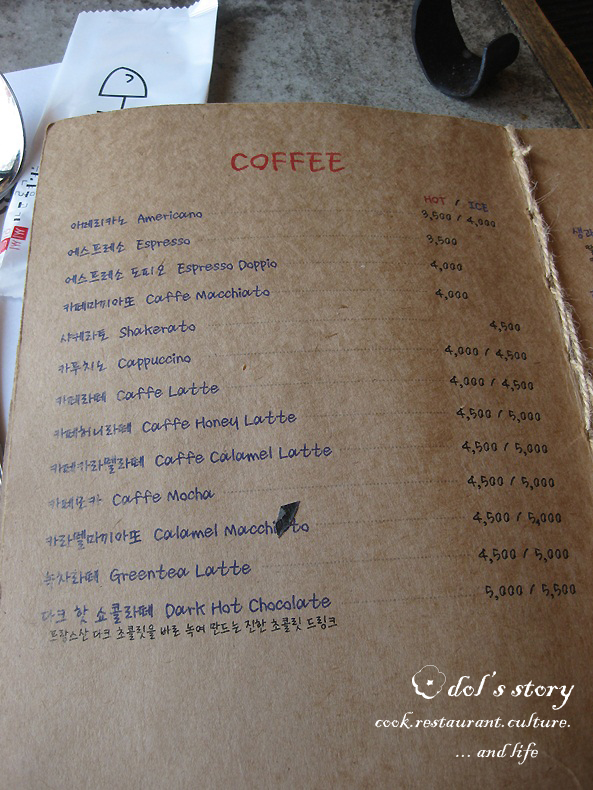 COFFEE
HOT / ICE
아메리카노 Americano 3,500 / 4,000
에스프레소 Espresso 3,500
에스프레소 도피오 Espresso Doppio 4,000
카페마끼아또 Caffe Macchiato 4,000
샤케라토 Shakerato 4,500
카푸치노 Cappuccino 4,000 / 4,500
카페라떼 Caffe Latte 4,000 / 4,500
카페허니라떼 Caffe Honey Latte 4,500 / 5,000
카페카라멜라떼 Caffe Calamel Latte 4,500 / 5,000
카페모카 Caffe Mocha 4,500 / 5,000
카라멜마끼아또 Calamel Macchiato 4,500 / 5,000
녹차라떼 Greentea Latte 4,500 / 5,000
다크 핫 쇼콜라떼 Dark Hot Chocolate 5,000 / 5,500
프랑스산 다크 초콜릿을 바로 녹여 만드는 진한 초콜릿 드링크
dol's story
cook.restaurant.culture.
... and life